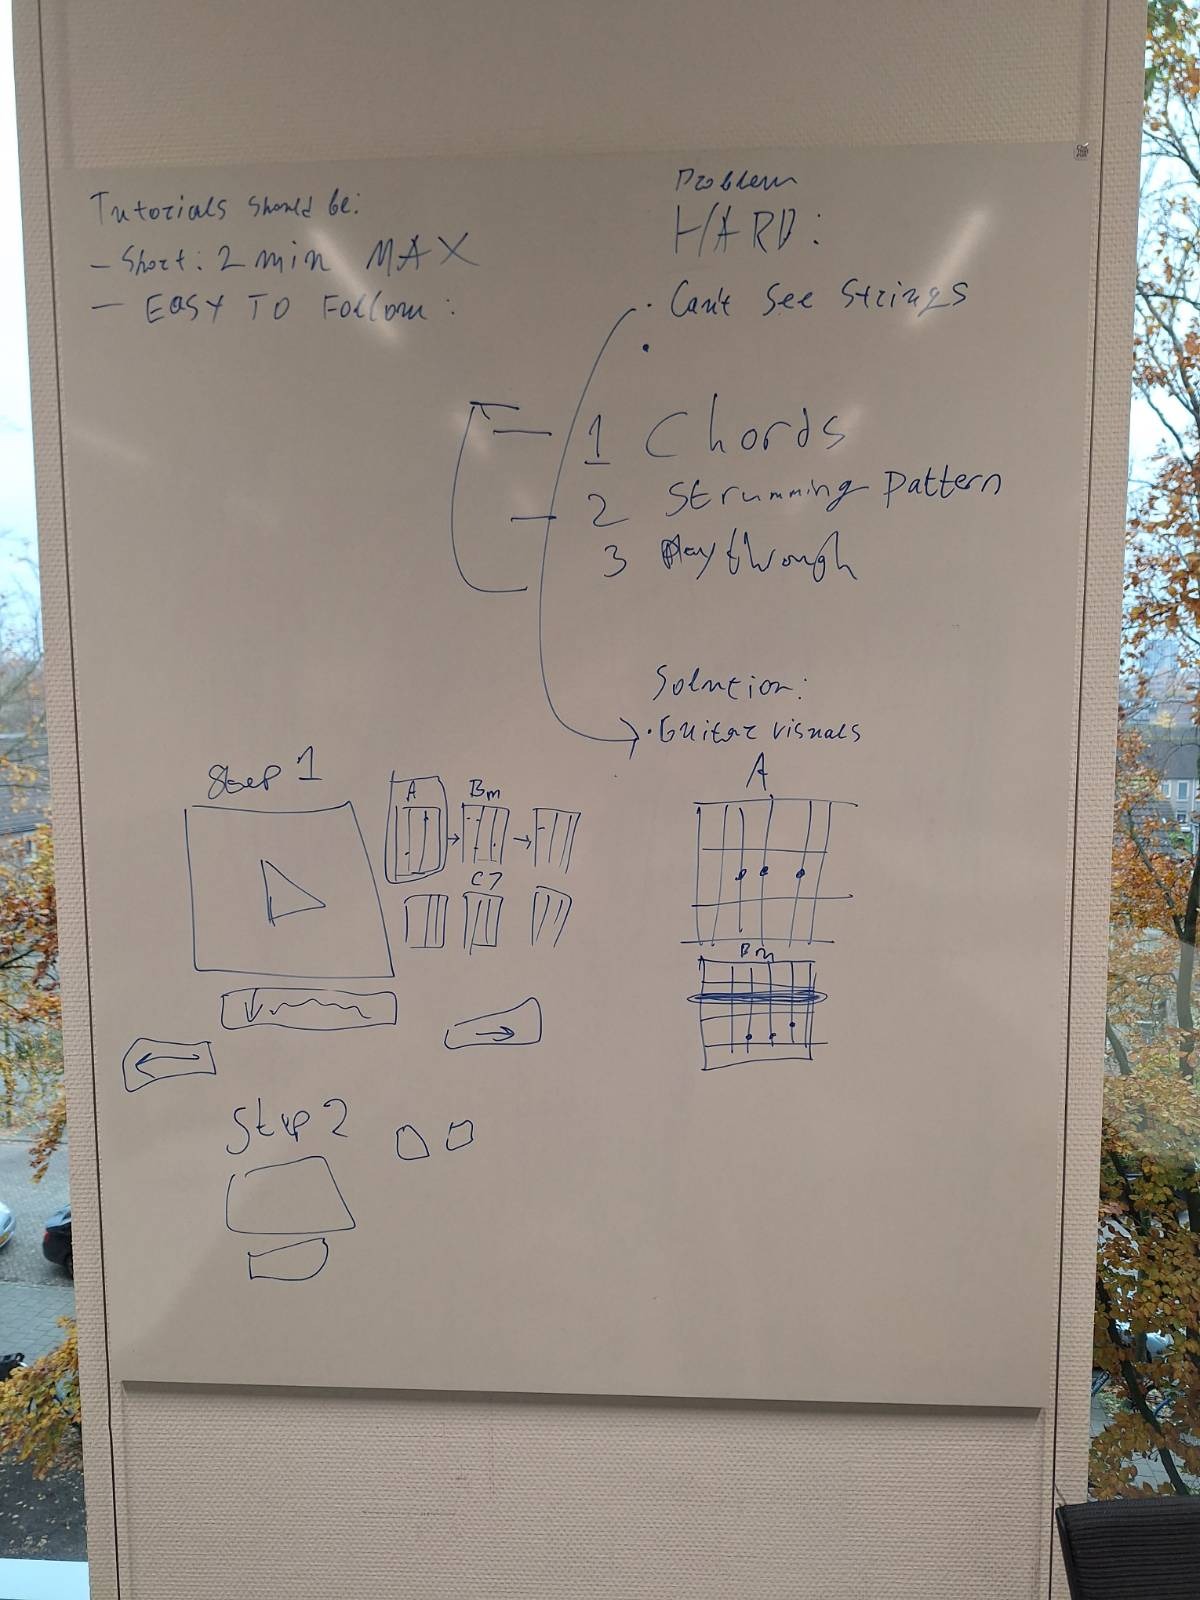 Tutorials should be:
- Short: 2 min MAX
- EASY TO Follow:
Problem
HARD:
· Can't See Strings
·
1 Chords
2 Strumming pattern
3 Playthrough
Solution:
· Guitar visuals
A
Bm
Step 1
A
Bm
C7
Step 2